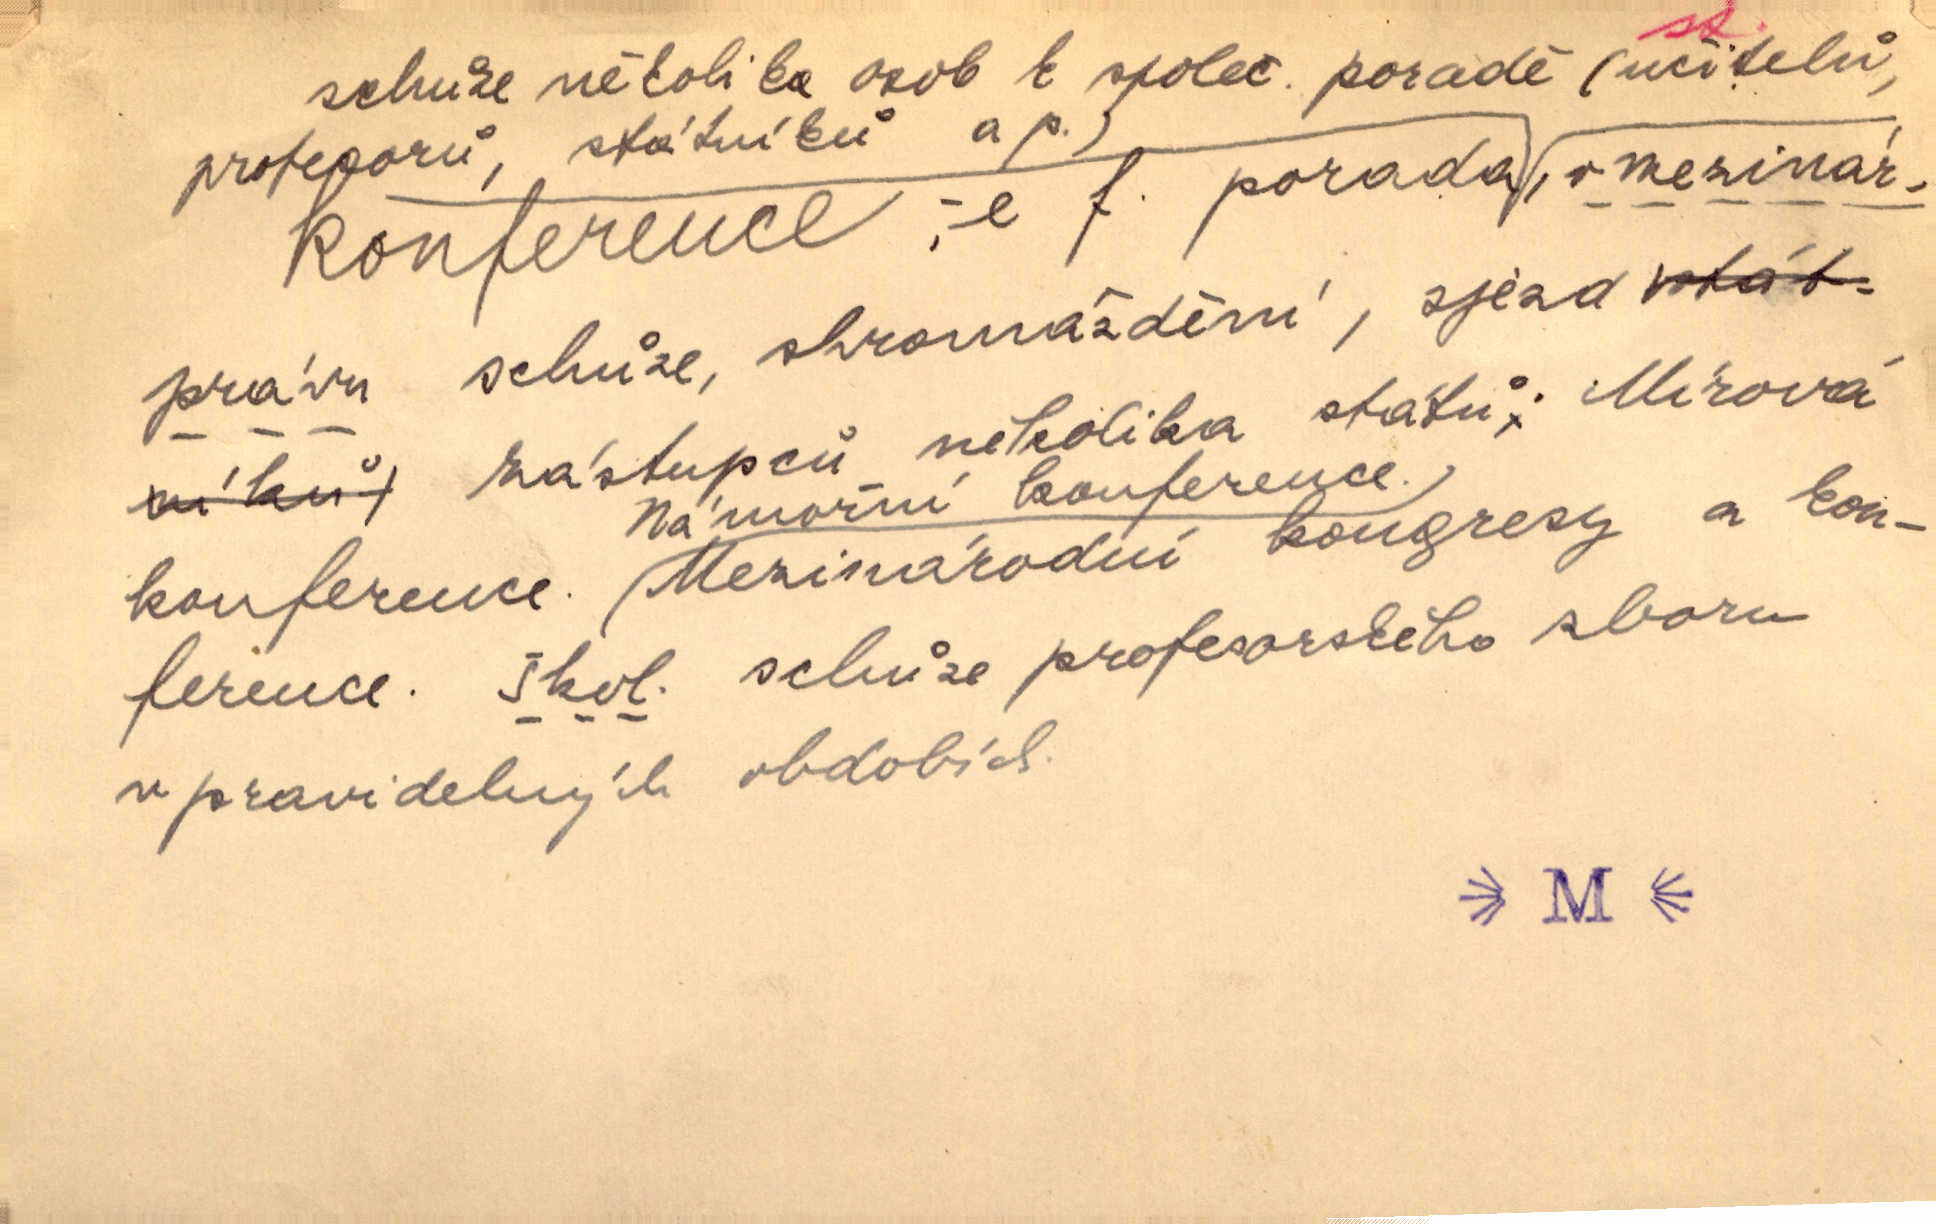 st.
schůze několika osob k společ. poradě (učitelů,
profesorů, státníků ap.)
konference, -e f. porada, v mezinár.
právu schůze, shromáždění, sjezd stát-
níků) zástupců několika států; Mírová
Námořní konference.
konference. Mezinárodní kongresy a kon-
ference. Škol. schůze profesorského sboru
v pravidelných obdobích.
M